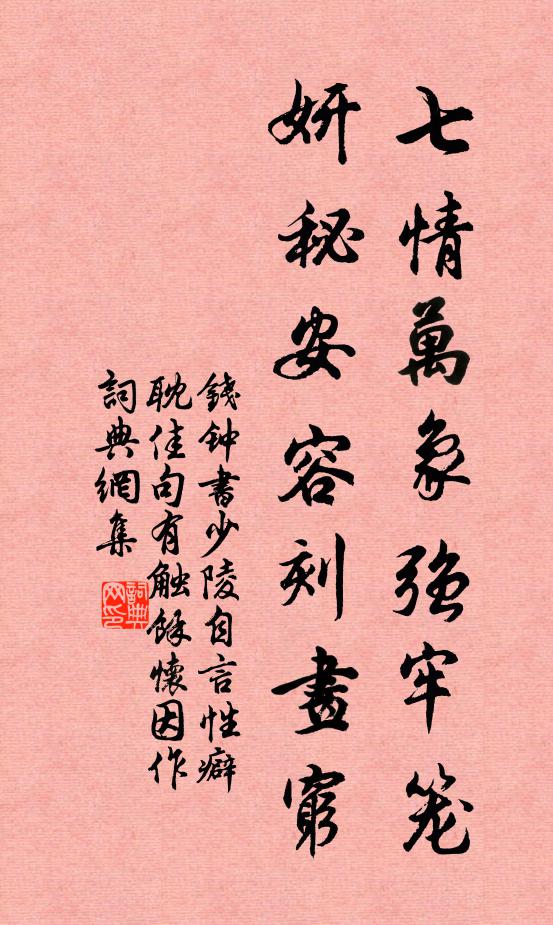 七情萬象強牢笼
妍秘安容刻畫窮
錢钟書少陵自言性癖
耽佳句有触余懷因作
詞典網集
詞典
网印